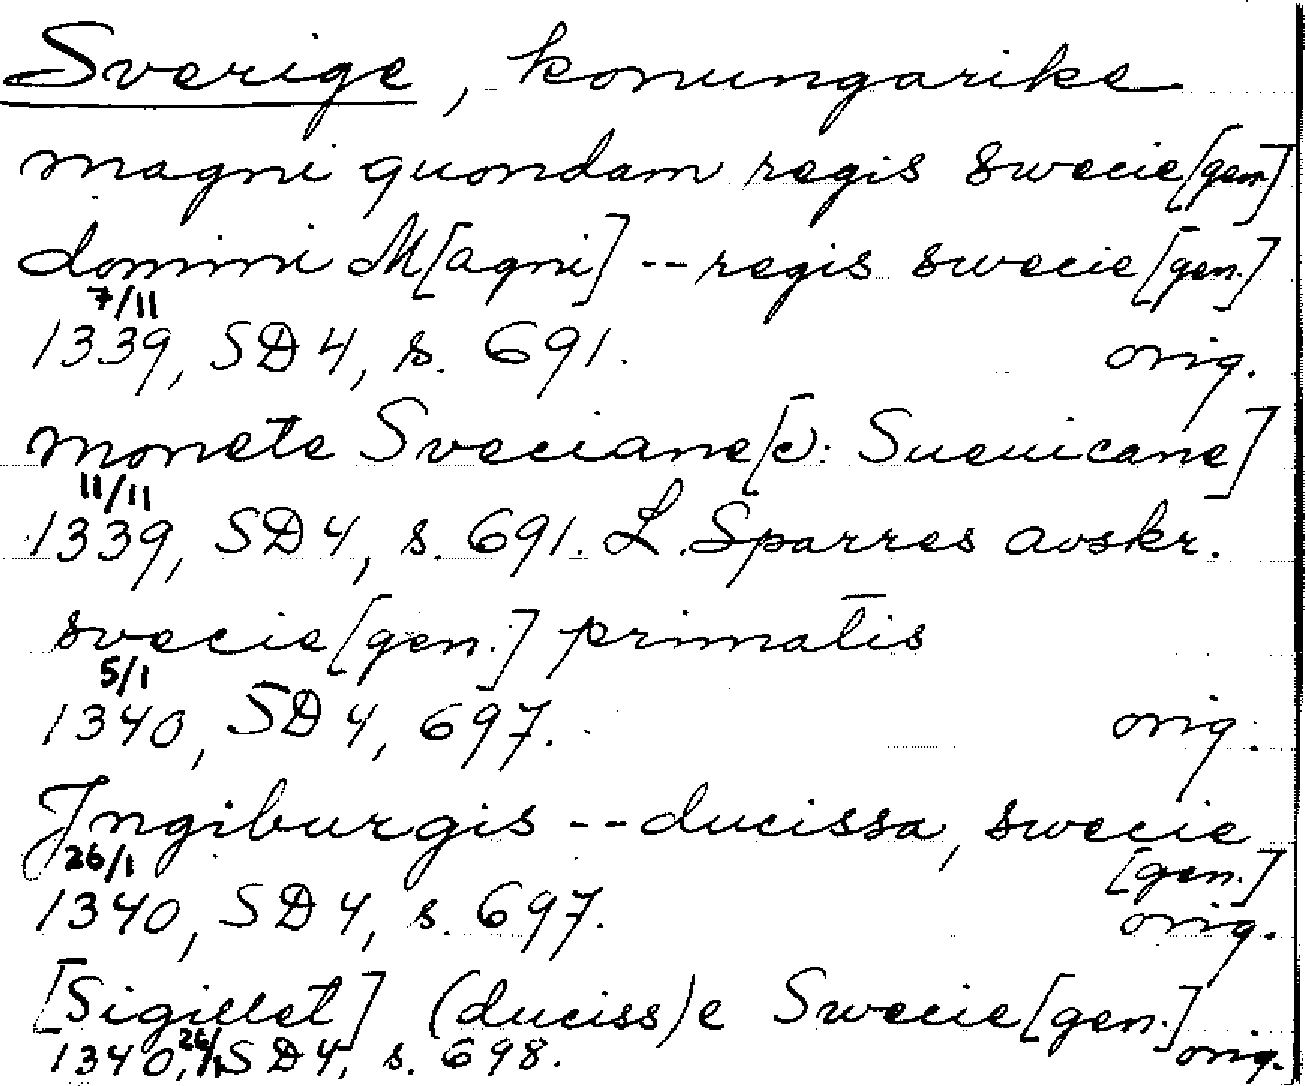 Sverige, konungarike
magni quondam regis swecie [gen.]
domini M[agni] -- regis swecie [gen.]
7/11
1339, SD 4, s. 691. orig.
monete Sveciane [ɔ: Sueuicane]
11/11
1339, SD 4, s. 691. L. Sparres avskr.
svecie [gen.] primatis
5/1
1340, SD 4, 697. orig.
Jngiburgis -- ducissa, swecie
[gen.]
26/1
1340, SD 4, s. 697. orig.
[Sigillet] (duciss)e Swecie [gen.]
26/1
1340, SD 4, s. 698. orig.